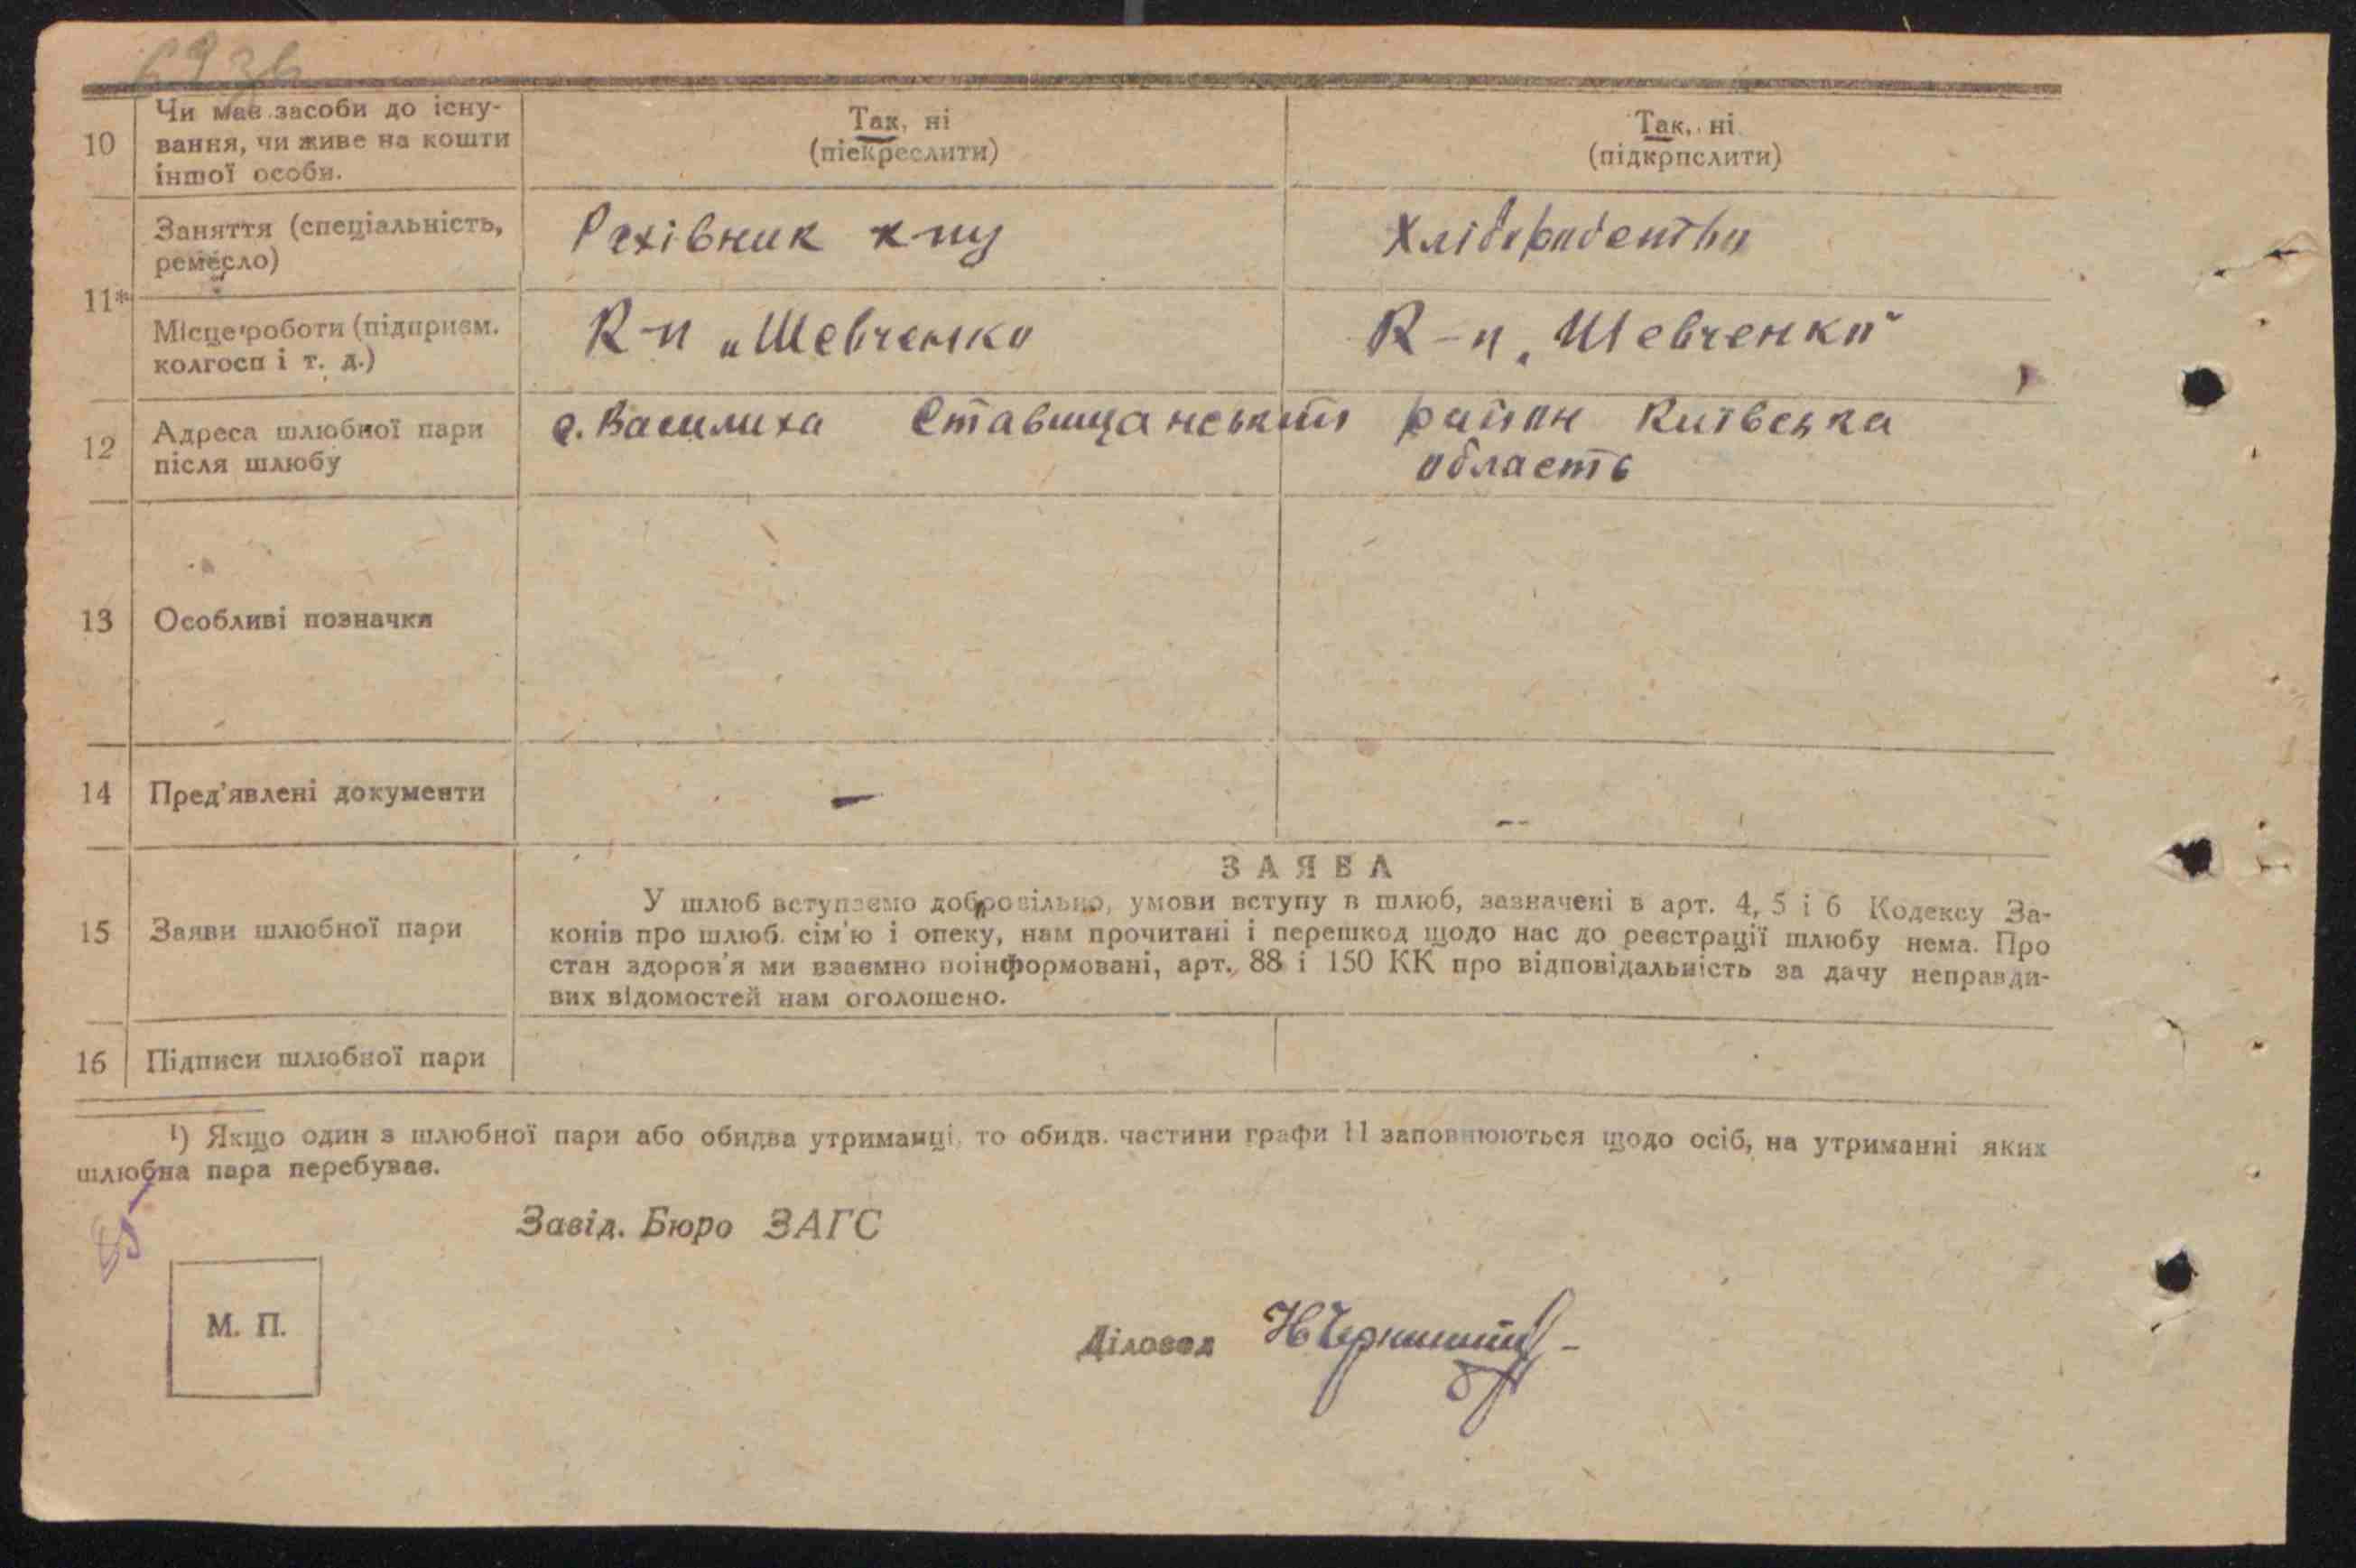 69зв
10 Чи має засоби до існу-
вання, чи живе на кошти
іншої особи.
Так, ні
(піекреслити)
Так, ні
(підкрпслити)
11*
Заняття (спеціальність,
ремесло)
Рахівник
Хлібороб
Місце роботи (підприєм.
колгосп і т. д.)
К-п „Шевченко
К-п „Шевченко"
12 Адреса шлюбної пари
після шлюбу
с. Василиха Ставищанський район Київська
область
13 Особливі позначки
14 Пред'явлені документи
— —
15 Заяви шлюбної пари
ЗАЯВА
У шлюб вступаємо добровільно, умови вступу в шлюб, зазначені в арт. 4, 5 і 6 Кодексу За-
конів про шлюб. сім'ю і опеку, нам прочитані і перешкод щодо нас до реєстрації шлюбу нема. Про
стан здоров'я ми взаємно поінформовані, арт. 88 і 150 КК про відповідальність за дачу неправди-
вих відомостей нам оголошено.
16 Підписи шлюбної пари
¹) Якщо один з шлюбної пари або обидва утриманці, то обидв. частини графи 11 заповнюються щодо осіб, на утриманні яких
шлюбна пара перебуває.
85
Завід. Бюро ЗАГС
М. П.
Діловод